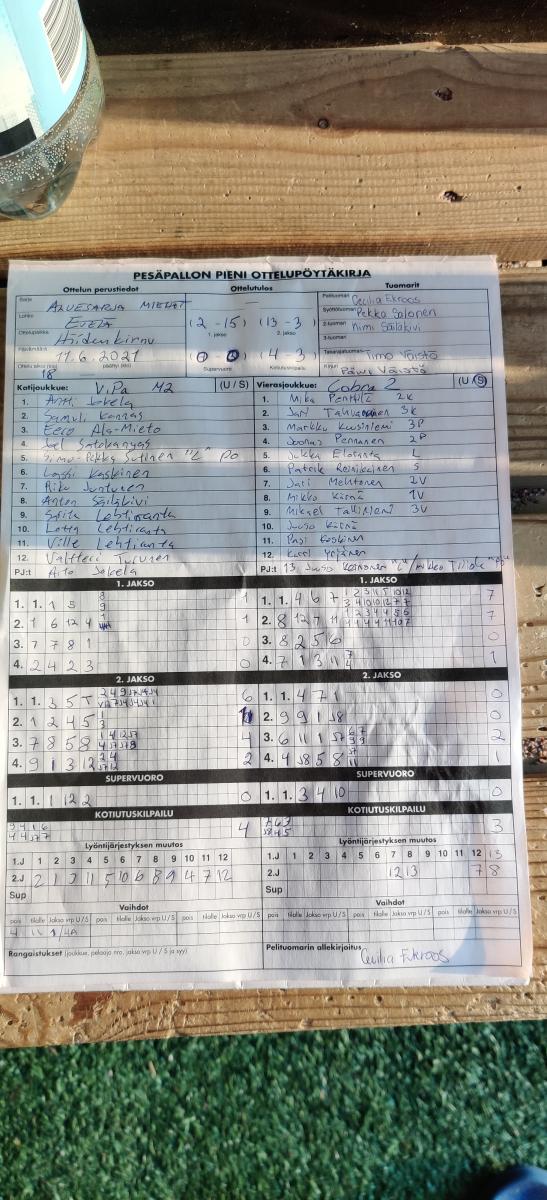 PESÄPALLON PIENI OTTELUPÖYTÄKIRJA
Ottelun perustiedot Ottelutulos Tuomarit
Sarja ALUESARJA MIEHET
Lohko ETELÄ
Ottelupaikka Hiidenkirnu
Päivämäärä 11.6.2021
Ottelu alkoi (klo) 18 päättyi (klo)
(2 - 15) (13 - 3)
1. jakso 2. jakso
(0 - 0) (4 - 3)
Supervuoro Kotiutuskilpailu
Pelituomari Cecilia Ekroos
Syöttötuomari Pekka Salonen
2-tuomari Kimi Säiläkivi
3-tuomari
Takarajatuomari Timo Väistö
Kirjuri Päivi Väistö
Kotijoukkue: ViPa M2 (U / S)
1. Antti Jokela
2. Samuli Kannas
3. Eero Ala-Mieto
4. Satokangas
5. Simo-Pekka Sutinen
6. Lassi Koskinen
7. Riku Juntunen
8. Anton Säiläkivi
9. Lehtiranta
10. Lotta Lehtiranta
11. Ville Lehtiranta
12. Valtteri Turunen
PJ:t Aito Jokela
Vierasjoukkue: Cobra 2 (U / S)
1. Mika Penttilä 2K
2. Jari 3K
3. Markku Kuusiniemi 3P
4. Joonas Pennanen 2P
5. Jukka Eloranta L
6. Patrik Reinikainen S
7. Jari Mehtonen 2V
8. Mikko Kärnä 1V
9. Mikael Talliniemi 3V
10. Juuso Kärnä
11. Pasi Koskinen
12.
PJ:t 13. Juuso
1. JAKSO
1. 1. 1 5 1
2. 1 6 12 4 1
3. 7 7 8 1 0
4. 2 4 2 3 0
1. JAKSO
1. 1. 4 6 7 7
2. 8 12 7 11 7
3. 8 2 5 6 0
4. 7 1 3 11 1
2. JAKSO
1. 1. 3 5 6
2. 1 2 4 5 1
3. 7 8 5 8 4
4. 9 1 3 12 2
2. JAKSO
1. 1. 4 7 1 0
2. 9 9 1 J8 0
3. 6 11 1 J7 2
4. 4 J8 5 8 1
SUPERVUORO
1. 1. 1 12 2 0
SUPERVUORO
1. 1. 3 4 10 0
KOTIUTUSKILPAILU
4
KOTIUTUSKILPAILU
3
Lyöntijärjestyksen muutos
1.J 1 2 3 4 5 6 7 8 9 10 11 12
2.J 2 1 3 11 5 10 6 8 9 4 7 12
Sup
Vaihdot
pois tilalle Jakso vrp U / S pois tilalle Jakso vrp U / S pois tilalle Jakso vrp U / S
4 11 1/4A
Rangaistukset (joukkue, pelaaja nro, jakso vrp U / S ja syy)
Lyöntijärjestyksen muutos
1.J 1 2 3 4 5 6 7 8 9 10 11 12 13
2.J 12 13 7 8
Sup
Vaihdot
pois tilalle Jakso vrp U / S pois tilalle Jakso vrp U / S pois tilalle Jakso vrp U / S
Pelituomarin allekirjoitus Cecilia Ekroos